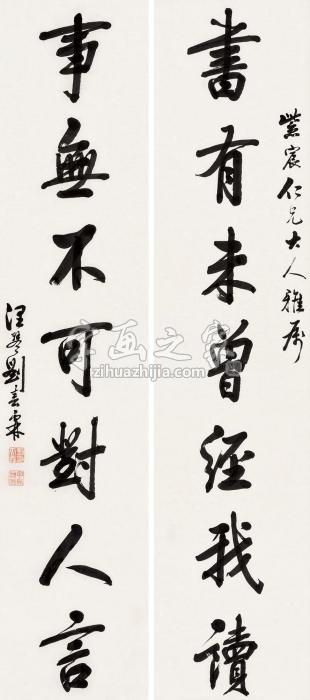 紫宸仁兄大人雅屬
書有未曾經我讀
事無不可對人言
劉春霖
字画之家
zihuazhijia.com